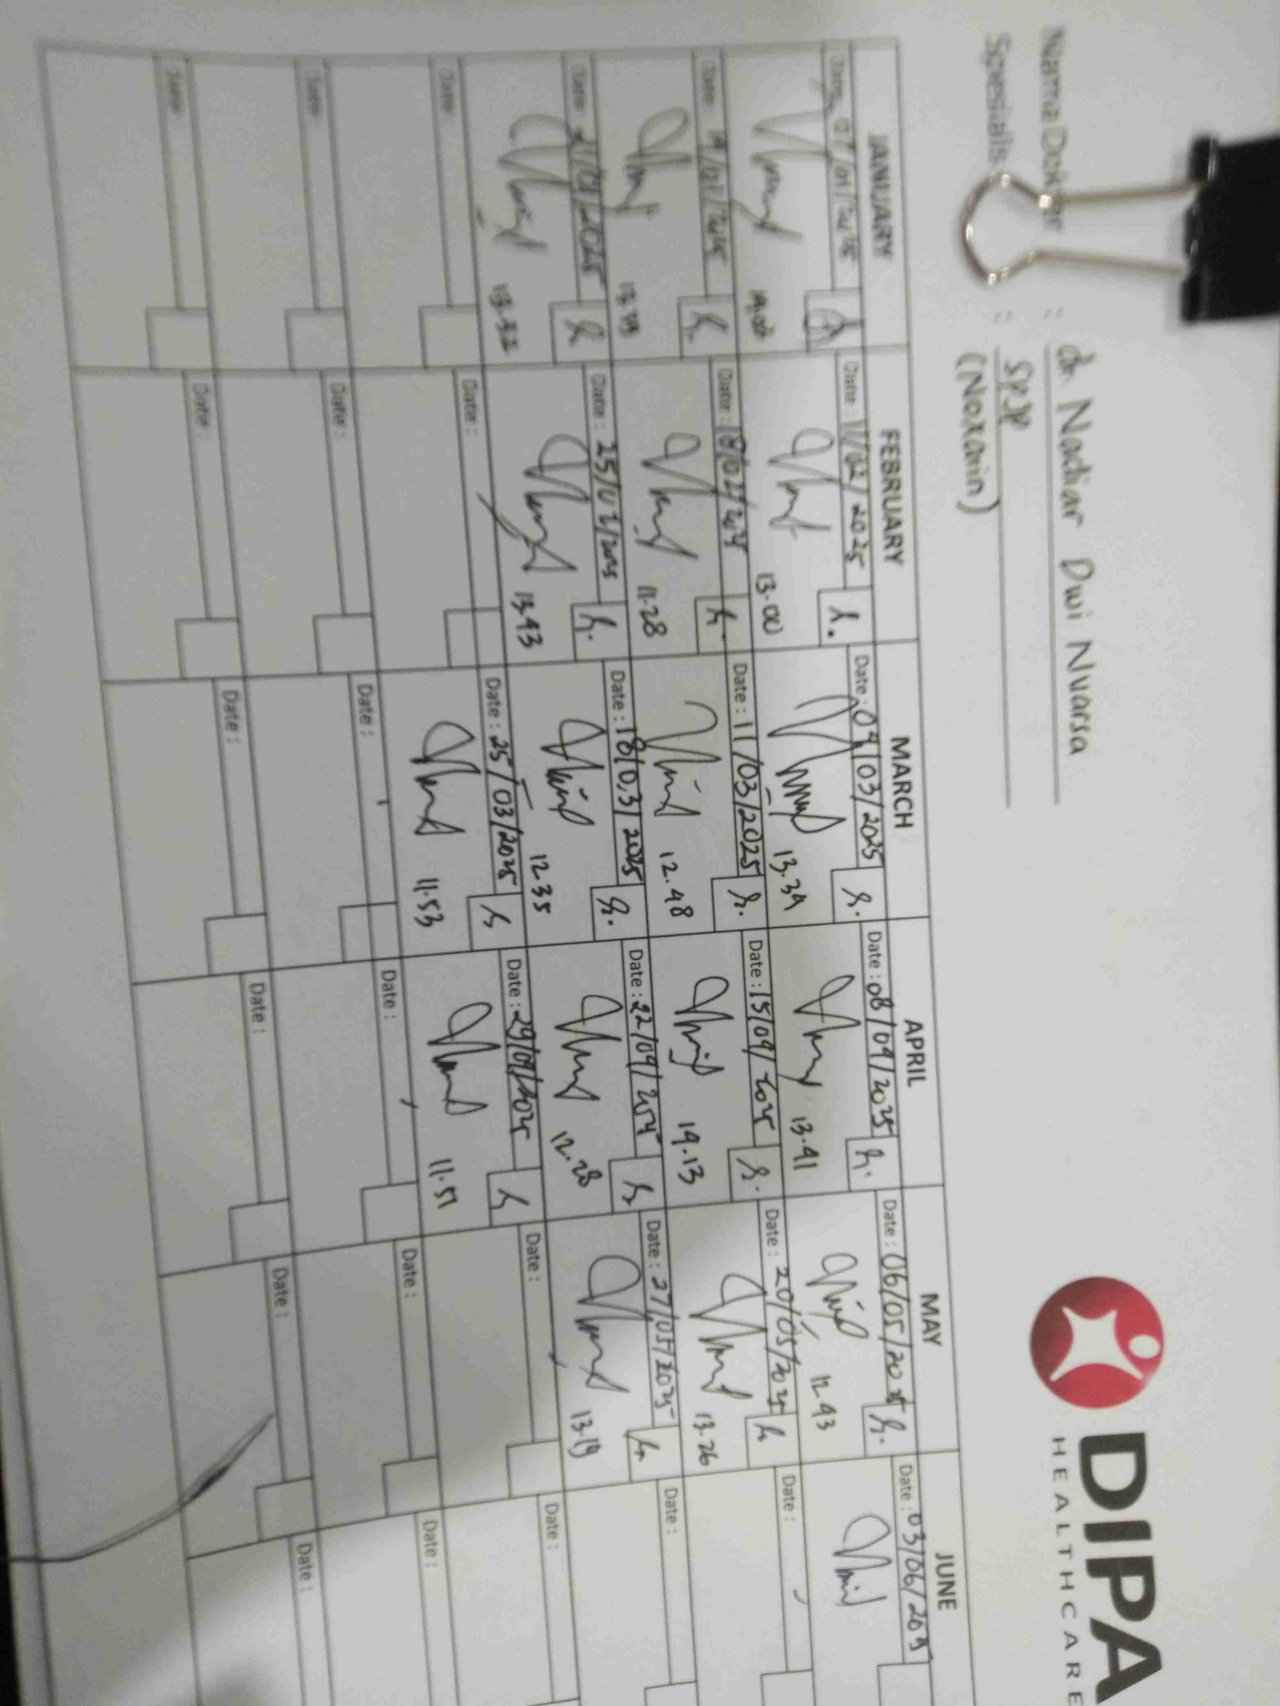 DIPA
HEALTHCARE
Nama Dokter : dr. Nadiar Dwi Nuarsa
Spesialis : SPJP
(Noxarin)
JANUARY FEBRUARY MARCH APRIL MAY JUNE
Date: 07/01/2025 Date: 11/02/2025 Date: 04/03/2025 Date: 08/04/2025 Date: 06/05/2025 Date: 03/06/2025
14.00 13.00 13.34 13.41 12.43
Date: 14/01/2025 Date: 18/02/2025 Date: 11/03/2025 Date: 15/04/2025 Date: 20/05/2025 Date:
11.28 12.48 14.13 13.26
Date: 21/01/2025 Date: 25/02/2025 Date: 18/03/2025 Date: 22/04/2025 Date: 27/05/2025 Date:
13.32 13.43 12.35 12.28 13.19
Date: Date: Date: 25/03/2025 Date: 29/04/2025 Date: Date:
11.53 11.51
Date: Date: Date: Date: Date: Date:
Date: Date: Date: Date: Date: Date: